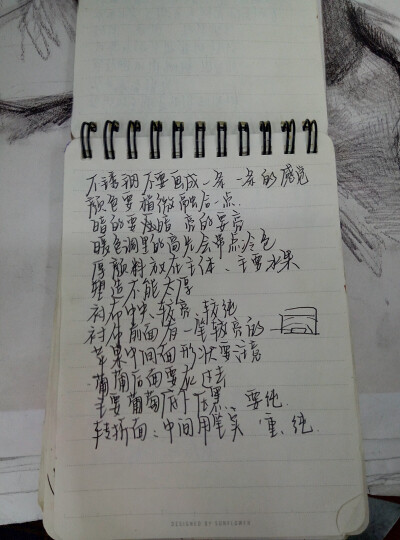 不锈钢不要画成一条一条的感觉
颜色要稍微融合一点.
暗的要够暗 亮的要亮
暖色调里的高光会带点冷色
厚颜料放在主体、主要水果
塑造不能太厚
衬布中、较亮、较纯
衬布前面有一笔较亮的
苹果中间面形状要注意
葡萄后面要灰过去
主要葡萄底下压黑、要纯.
转折面:中间用笔实 重、纯.
DESIGNED BY SUNFLOWER